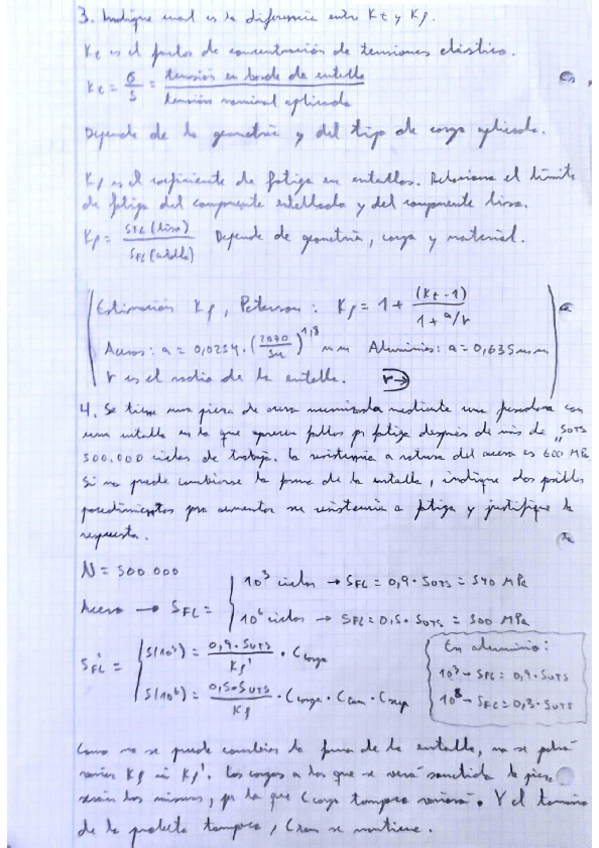 3. Indique cual es la diferencia entre Kt y Kf.
Kt es el factor de concentración de tensiones elástico.
Kt = σ/S = tensión en borde de entalla / tensión nominal aplicada
Depende de la geometría y del tipo de carga aplicada.
Kf es el coeficiente de fatiga en entallas. Relaciona el límite
de fatiga del componente entallado y del componente liso.
Kf = SFL (liso) / SFL (entalla) Depende de geometría, carga y material.
Estimación Kf, Peterson: Kf = 1 + (Kt - 1) / 1 + a/r
Aceros: a = 0,0254 · (2070/Su)^1,8 mm Aluminios: a = 0,635 mm
r es el radio de la entalla. r→
4. Se tiene una pieza de acero mecanizada mediante una fresadora con
una entalla en la que aparecen fallos por fatiga después de más de
500.000 ciclos de trabajo. La resistencia a rotura del acero es 600 MPa
SUTS
Si no puede cambiarse la forma de la entalla, indique dos posibles
procedimientos para aumentar su resistencia a fatiga y justifique la
respuesta.
N = 500.000
Acero → SFL = 10³ ciclos → SFL = 0,9 · SUTS = 540 MPa
10⁶ ciclos → SFL = 0,5 · SUTS = 300 MPa
S'FL = S(10³) = 0,9 · SUTS / Kf' · Ccarga
S(10⁶) = 0,5 · SUTS / Kf · Ccarga · Ctam · Csup
En aluminio:
10³ → SFL = 0,9 · SUTS
10⁸ → SFL = 0,3 · SUTS
Como no se puede cambiar la forma de la entalla, no se podrá
variar Kf ni Kf'. Las cargas a las que se verá sometida la pieza
serán las mismas, por lo que Ccarga tampoco variará. Y el tamaño
de la probeta tampoco, Ctam se mantiene.